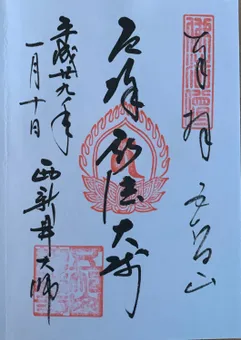 奉拝
五智山
厄除弘法大師
平成廿九年
一月十日
西新井大師